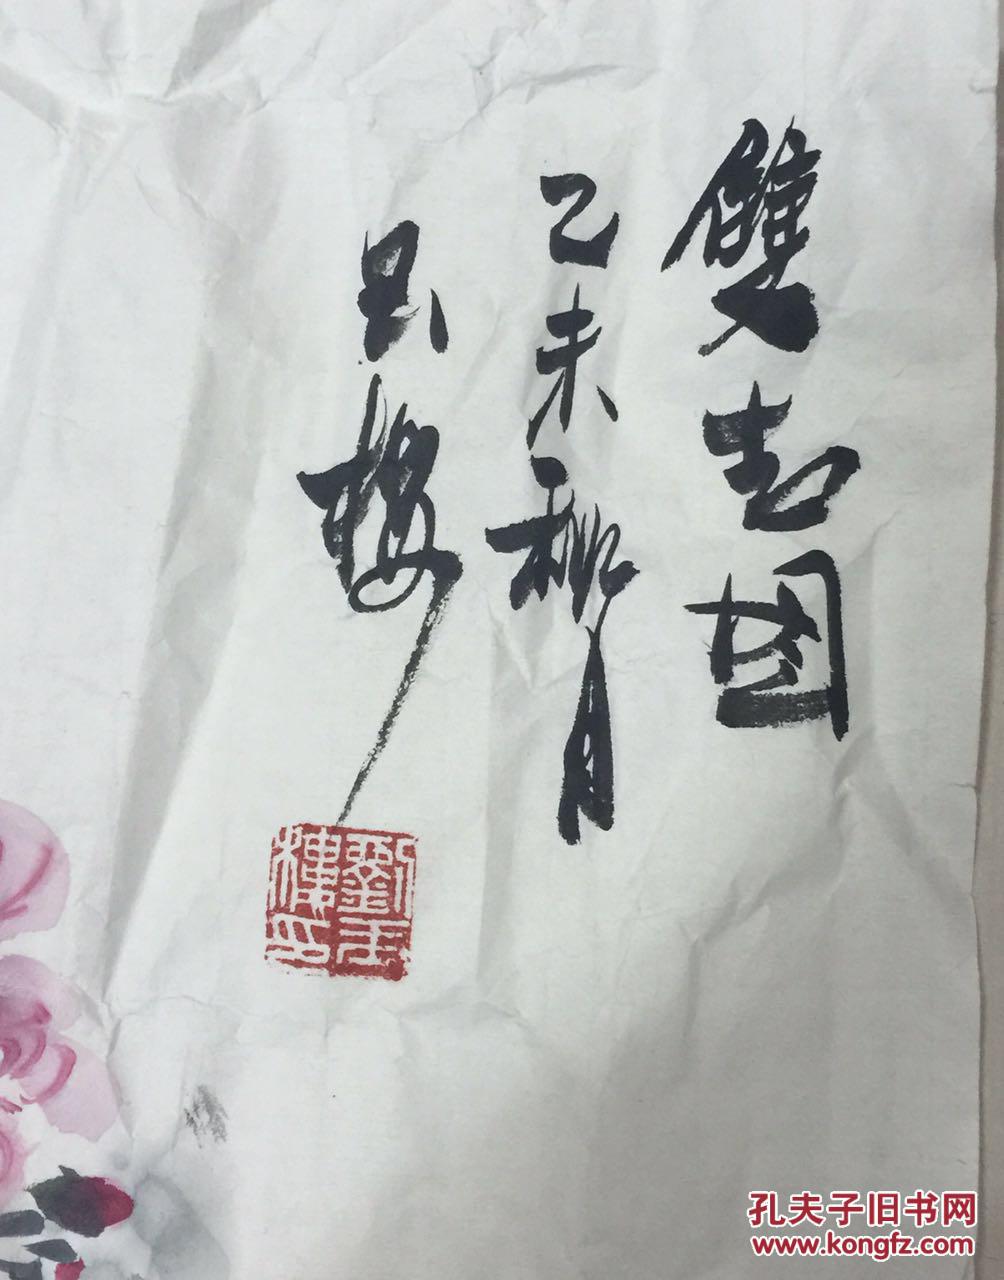 雙吉图
乙未秋月
玉楼
劉玉樓印
孔夫子旧书网
www.kongfz.com